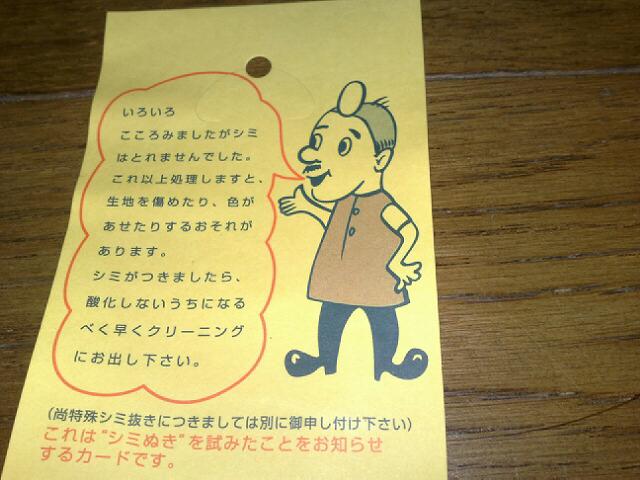 いろいろ
こころみましたがシミ
はとれませんでした。
これ以上処理しますと、
生地を傷めたり、色が
あせたりするおそれが
あります。
シミがつきましたら、
酸化しないうちになる
べく早くクリーニング
にお出し下さい。
(尚特殊シミ抜きにつきましては別に御申し付け下さい)
これは"シミぬき"を試みたことをお知らせ
するカードです。